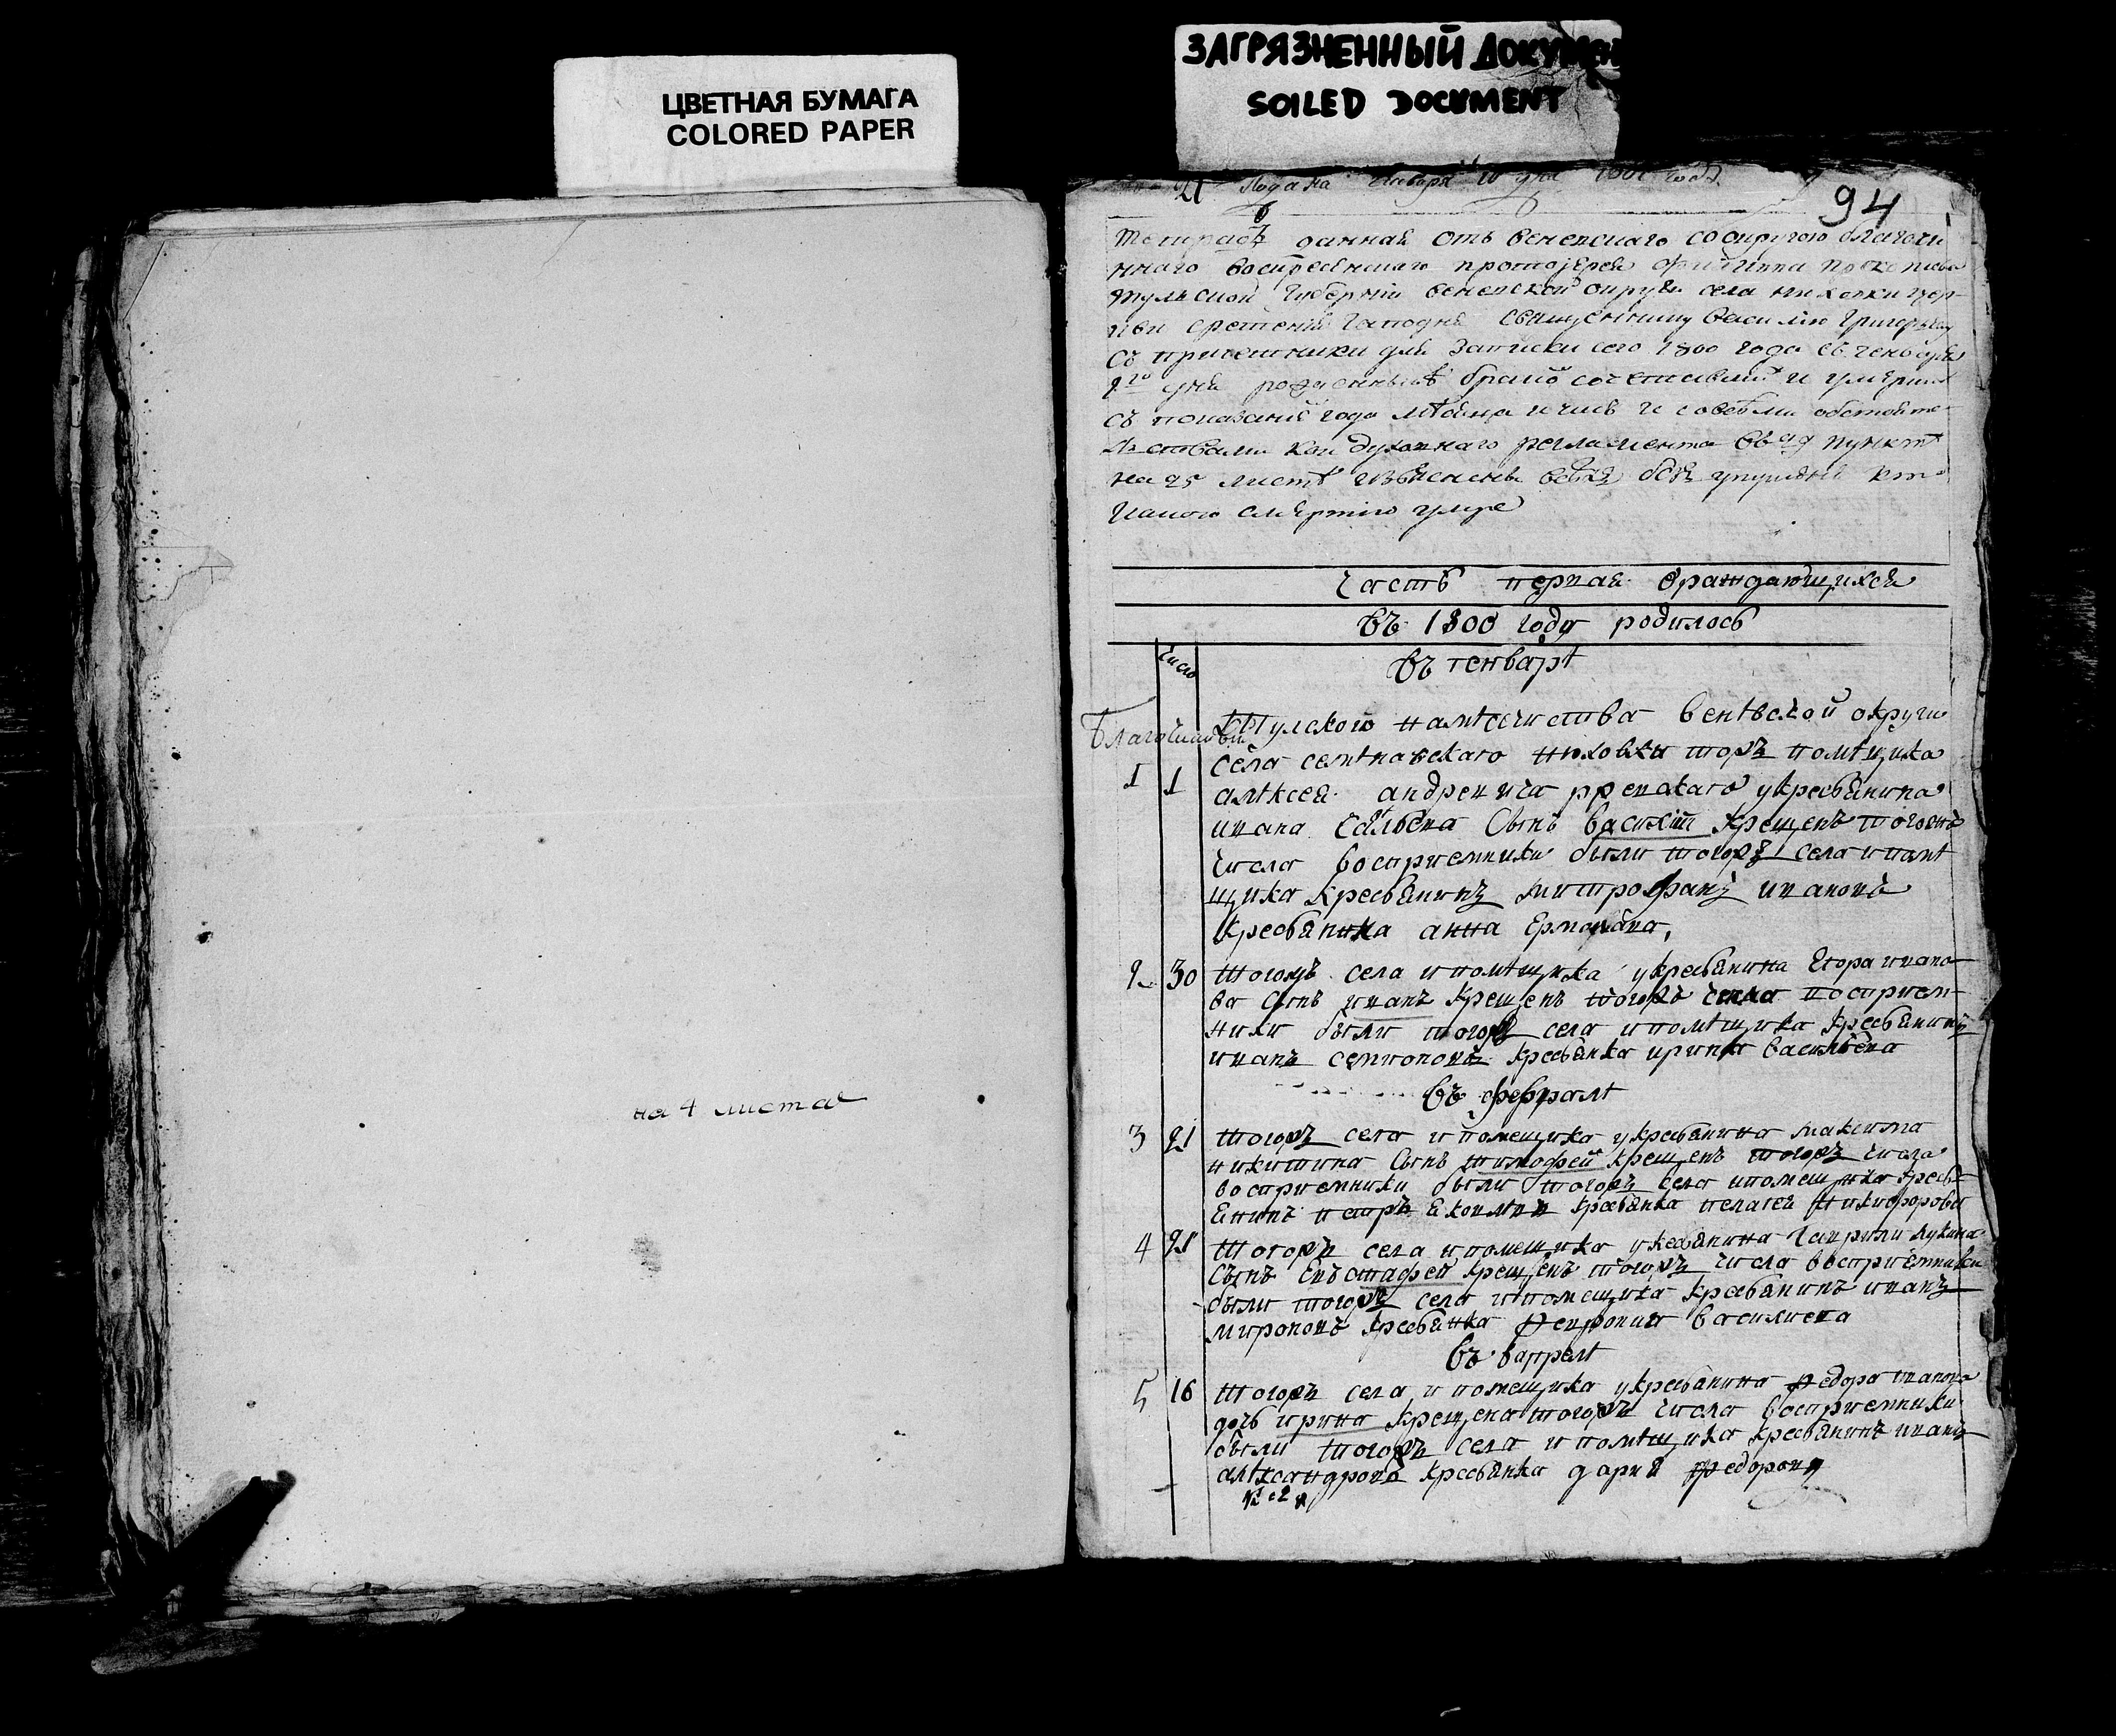 ЦВЕТНАЯ БУМАГА
COLORED PAPER
ЗАГРЯЗНЕННЫЙ ДОКУМЕН
SOILED DOCUMENT
на 4 листа
21 Подана генваря 10 дня 1801 года
94
Тетрадь данная отъ веневскаго со округою благочи
ннаго воскресенскаго протоіерея Филиппа
тулской губерніи веневской округи села нюховки цер-
кви сретенія господня священнику василию григорьеву
съ причетники для записки сего 1800 года съ генваря
1го дня рожденныхъ бракомъ сочетавших и умерших
съ показаниѣ года мѣсяца и числ и со всѣми обстояте-
лствами кои духовнаго регламента въ пунктѣ
на 25 листѣ изъяснены безъ упущения кто
какою смертию умре
часть первая ораждающихся
въ 1800 году родилось
число
въ генварѣ
Тулского намѣсничства веневской округи
села сретнавскаго нюховки тогожъ помѣщика
1 1 алѣксея андреивича ржевскаго укресьянина
ивана савѣльева сынъ василий крещенъ тогожъ
числа восприемники были тогожъ села ипомѣ
щика кресьянинъ митрофанъ ивановъ
кресьянка анна
2 30 тогожъ села ипомѣщика укресьянина Егора ивано
ва сынъ иванъ крещенъ тогожъ числа восприем-
ники были тогожъ села ипомѣщика кресьянинъ
иванъ семионовъ кресьянка ирина васильева
въ февралѣ
3 21 тогожъ села ипомещика укресьянина максима
никитина сынъ тимофей крещенъ тогожъ числа
восприемники были тогожъ села ипомещика кресь
янинъ петръ яковлевъ кресьянка пелагея никифорова
4 21 тогожъ села ипомещика укесьянина гаврили лукина
сынъ евъстафей крещенъ тогожъ числа восприемники
были тогожъ села ипомещика кресьянинъ иванъ
мироновъ кресьянка феврония василиева
въ апрелѣ
5 16 тогожъ села ипомещика укресьянина федора иванова
дочь ирина крещена тогожъ числа восприемники
были тогожъ села ипомѣщика кресьянинъ иванъ
алѣксандровъ кресьянка дария федорова